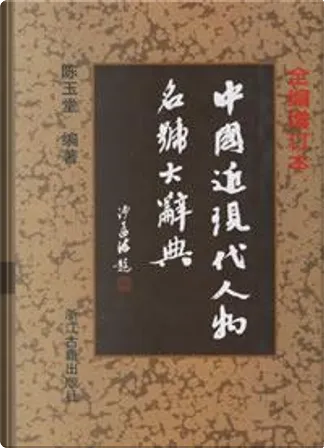 全编增订本
中國近現代人物
名號大辭典
沙孟海題
陈玉堂 编著
浙江古籍出版社